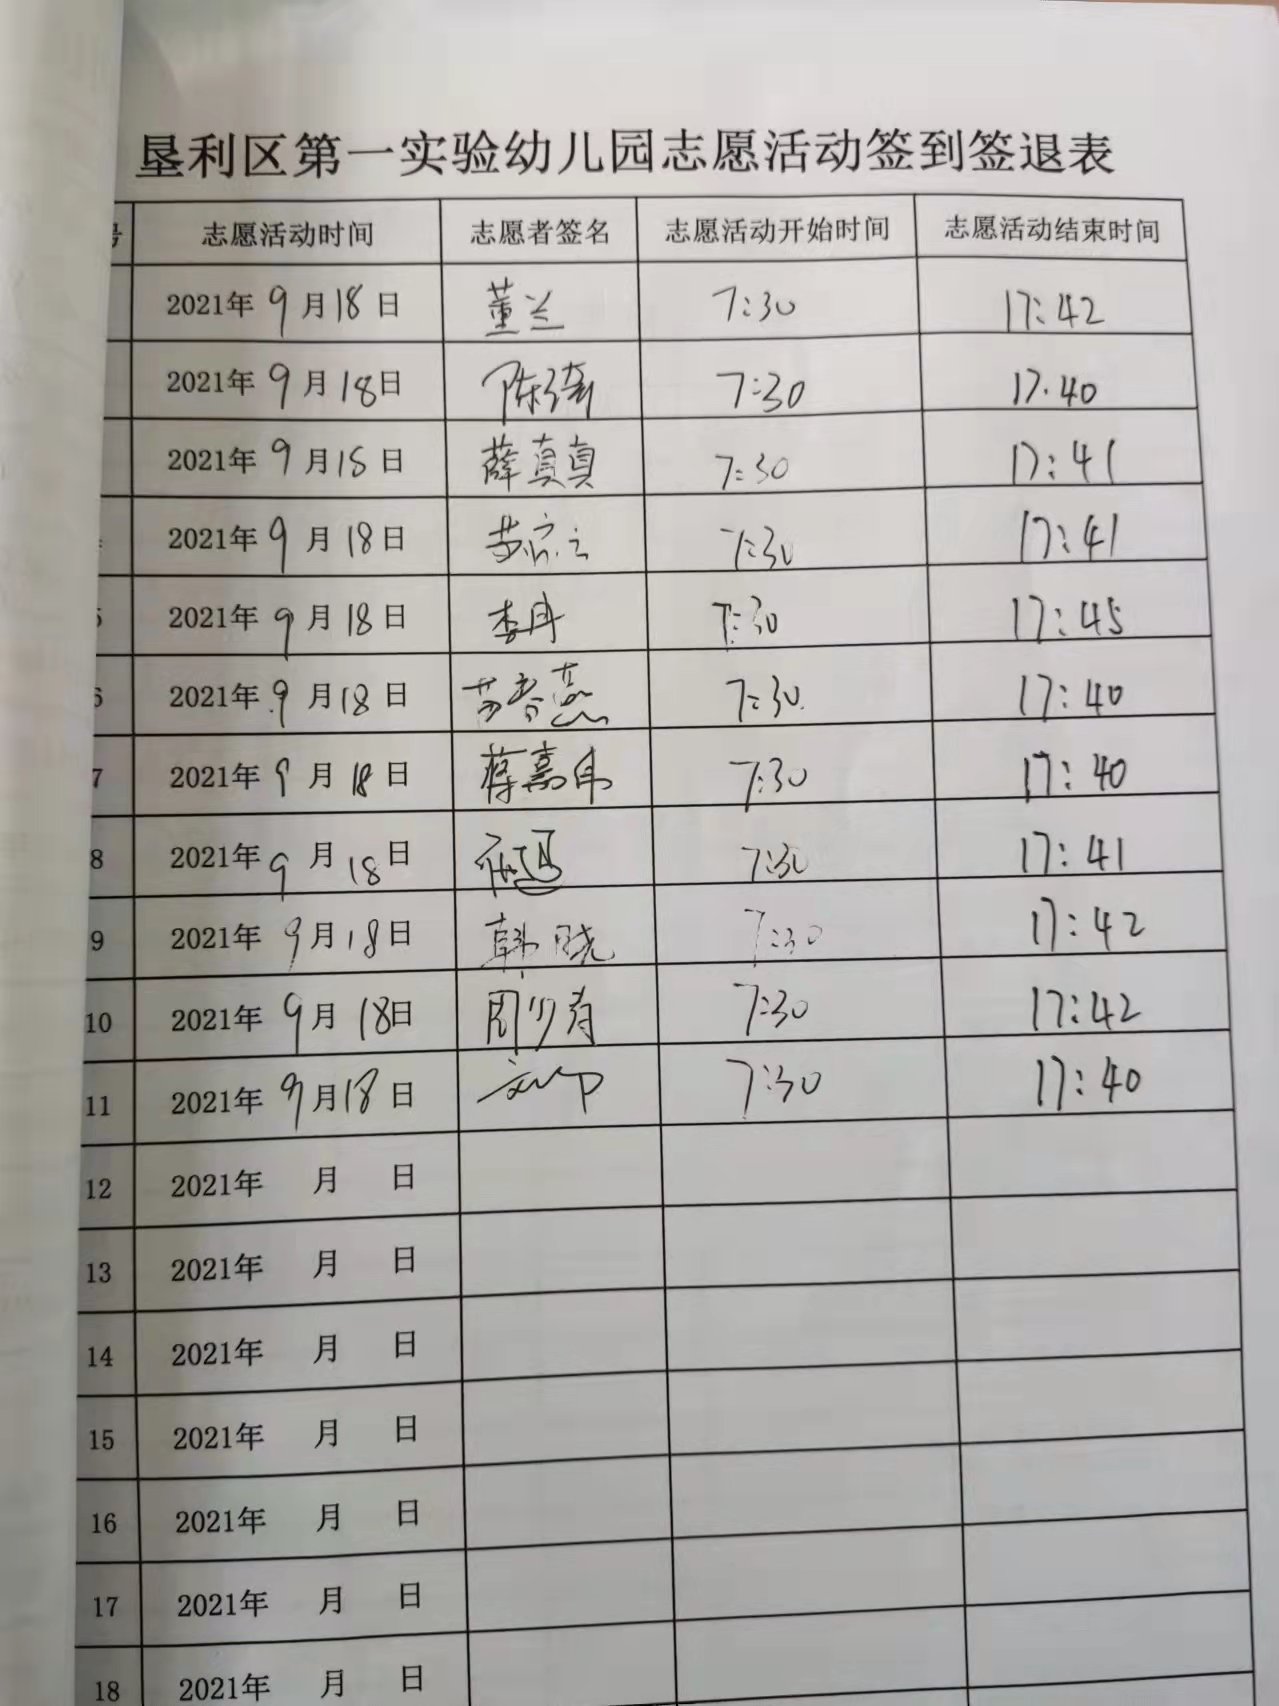 垦利区第一实验幼儿园志愿活动签到签退表
号 志愿活动时间 志愿者签名 志愿活动开始时间 志愿活动结束时间
2021年 9月18日 董兰 7:30 17:42
2021年 9月18日 陈绮 7:30 17.40
2021年 9月18日 薛真真 7:30 17:41
2021年 9月18日 7:30 17:41
5 2021年 9月18日 李丹 7:30 17:45
6 2021年 9月18日 苏春蕊 7:30 17:40
7 2021年 9月18日 蒋嘉伟 7:30 17:40
8 2021年 9月18日 7:30 17:41
9 2021年 9月18日 韩晓 7:30 17:42
10 2021年 9月18日 周少春 7:30 17:42
11 2021年 9月18日 7:30 17:40
12 2021年 月 日
13 2021年 月 日
14 2021年 月 日
15 2021年 月 日
16 2021年 月 日
17 2021年 月 日
18 2021年 月 日